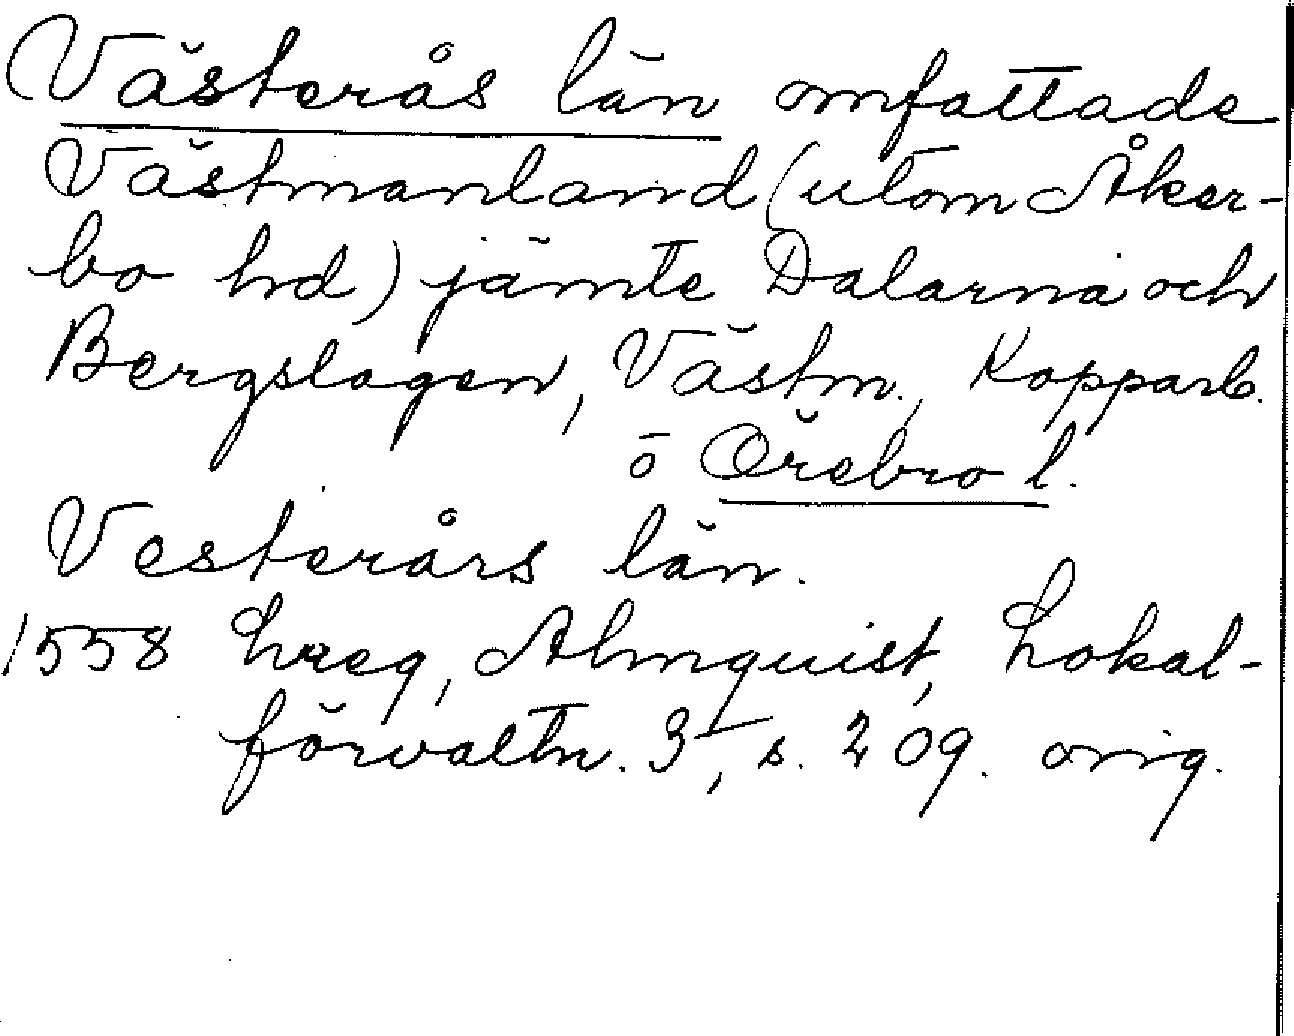 Västerås län omfattade
Västmanland (utom Åker-
bo hd) jämte Dalarna och
Bergslagen, Västm., Kopparb.
o Örebro l.
Vesterårs län.
1558 Lreg, Almquist, Lokal-
förvaltn. 3, s. 209. orig.